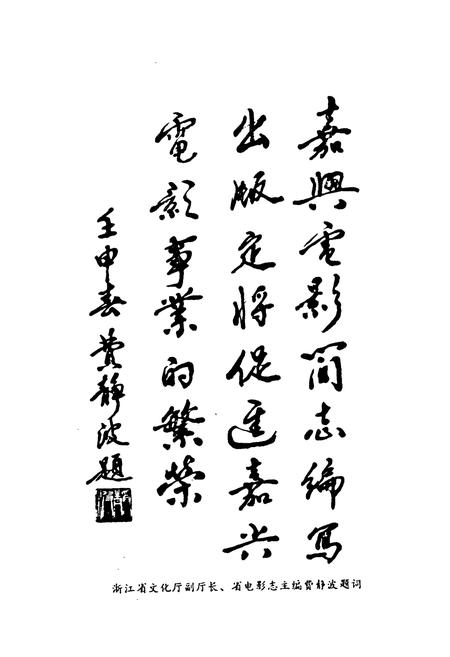 嘉興电影简志编写
出版定将促進嘉兴
電影事業的繁荣
壬申春 費静波題
浙江省文化厅副厅长、省电影志主编费静波题词